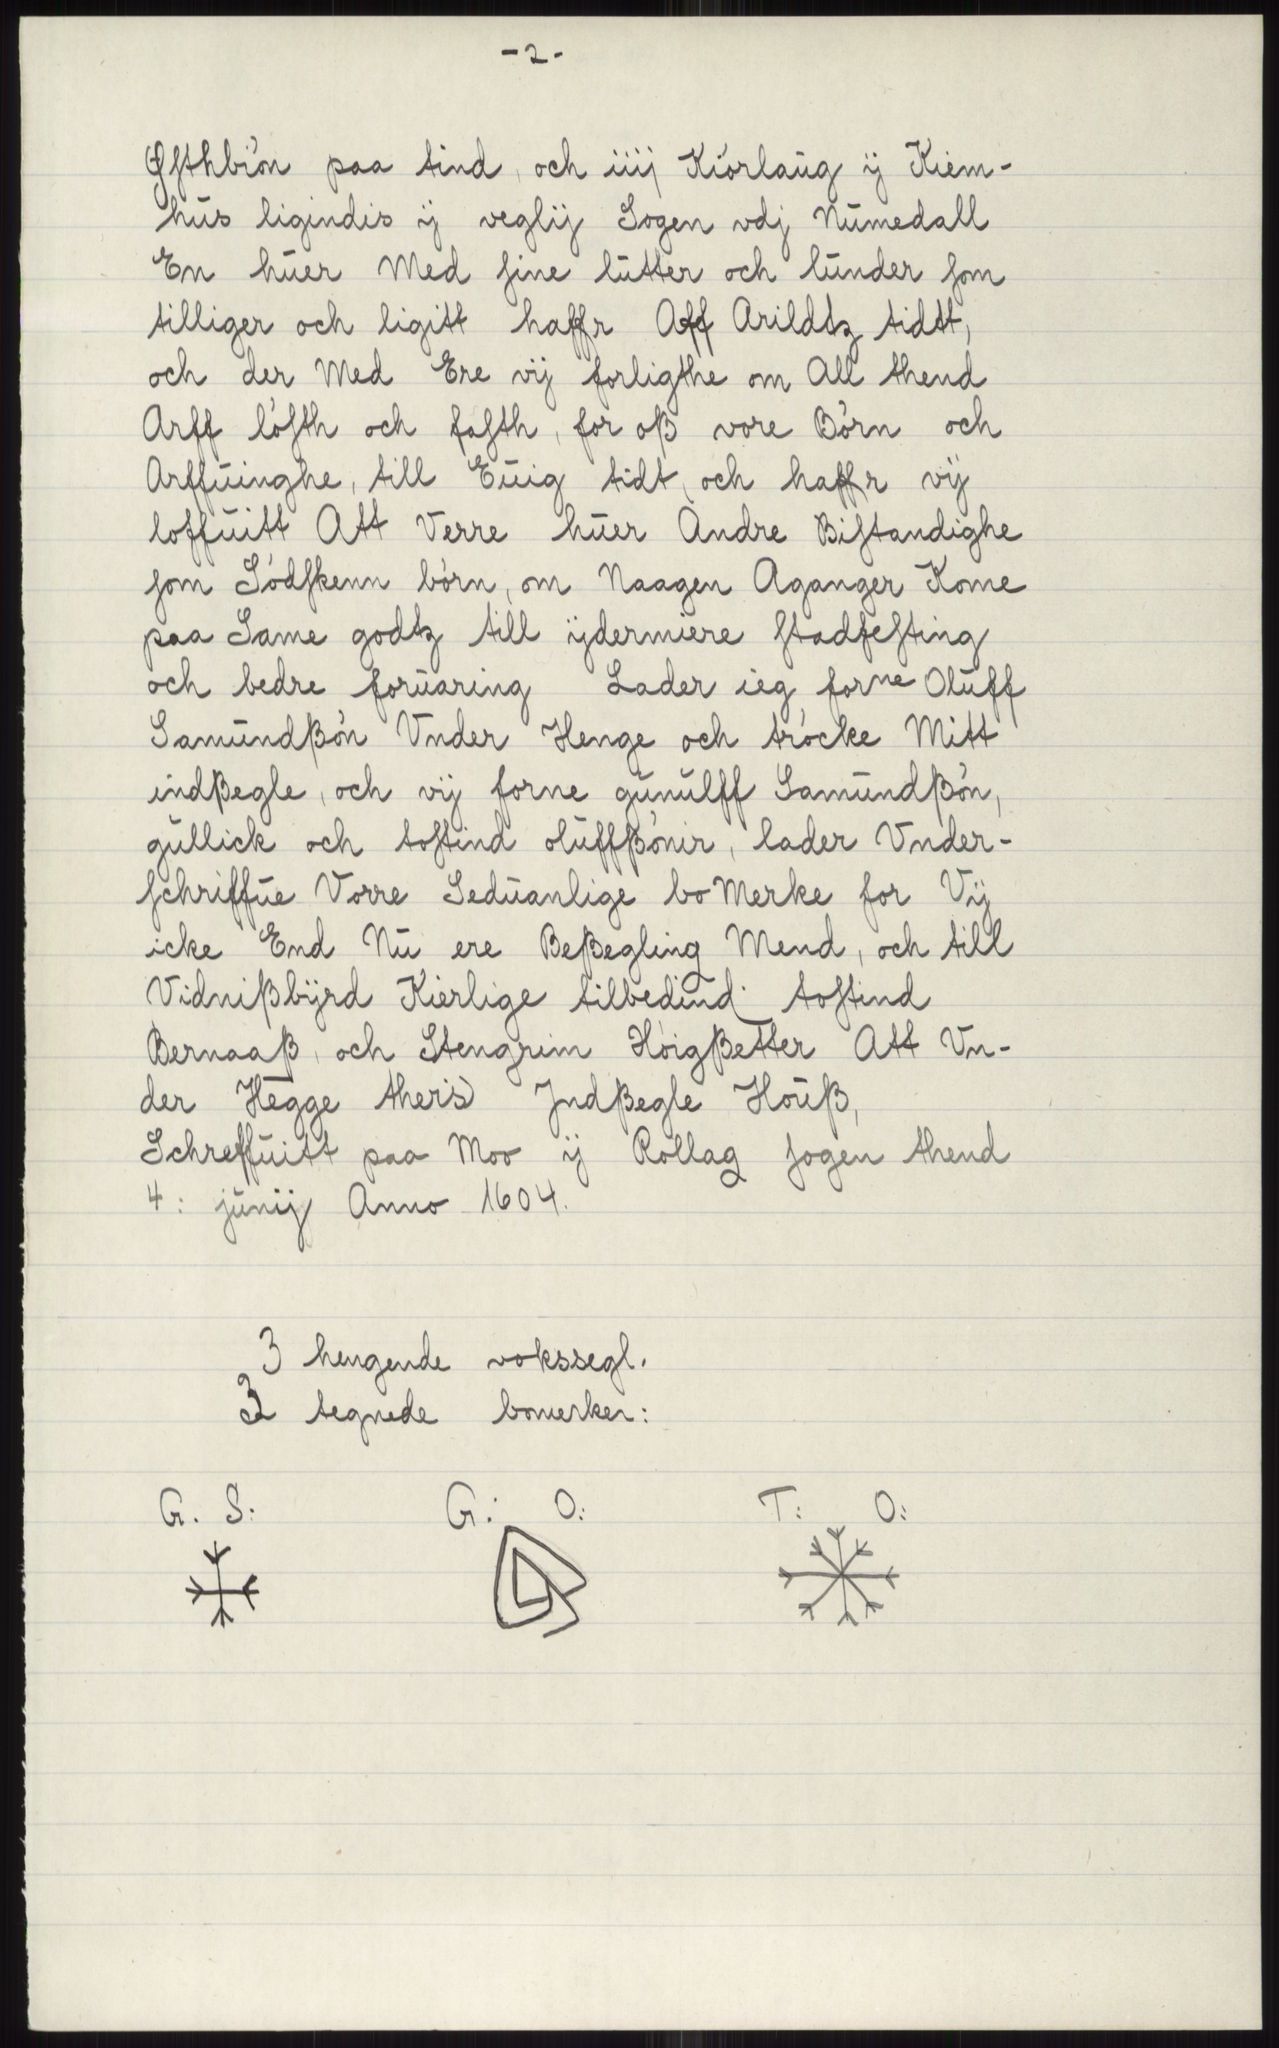 - 2 -
Øfthbiøn paa tind, och iiij Kiörlaug ÿ Kiem-
hus ligindis ÿ veglÿ Sogen vdj Numedall
En huer Med sine lutter och lunder som
tilliger och ligitt haffr Aff Arildtz tidtt,
och der Med Ere vÿ forligthe om All thend
Arff löfth och fasth, for oß vore Börn och
Arffuinghe, till Euig tidt, och haffr vÿ
loffuitt Att Verre huer Andre Bistandighe
som Södskenn börn, om Naagen Aganger Kome
paa Same godtz till ÿdermiere stadfesting
och bedre foruaring Lader ieg forne Oluff
Samundßön Vnder Henge och tröcke Mitt
indßegle, och vÿ forne gunulff Samundßön,
gullick och tostind oluffßönir, lader Vnder-
schriffue Vorre Seduanlige bo Merke for Vÿ
icke End Nu ere Beßegling Mend, och till
Vidnißbÿrd Kierlige tilbedind tostind
Bernaaß, och Stengrim Höigßetter Att Vn-
der Hegge theris Jndßegle Houß,
Schreffuitt paa Moo ÿ Rollag sogen thend
4: junij Anno 1604.
3 hengende vokssegl.
3 tegnede bomerker:
G. S: G: O: T: O: